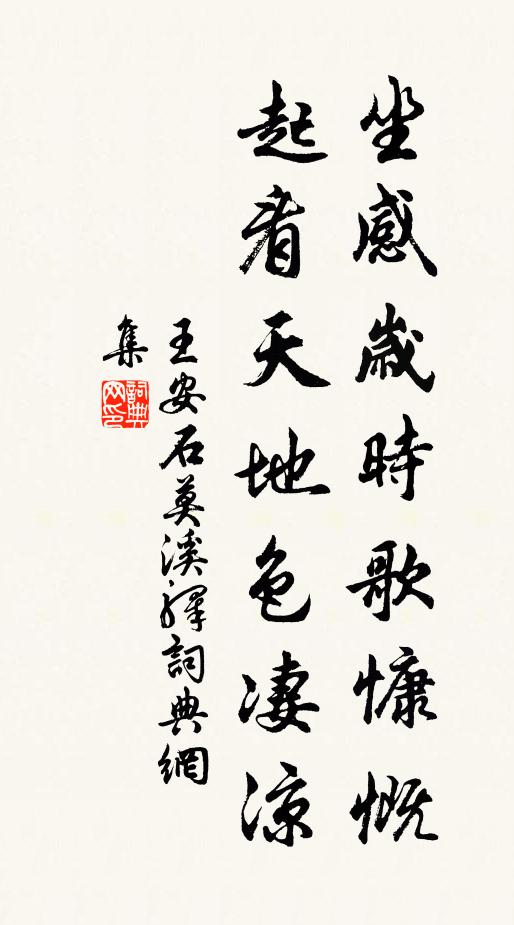 坐感歲時歌慷慨
起看天地色淒涼
王安石莫溪驛詞典網
集
詞典
网印